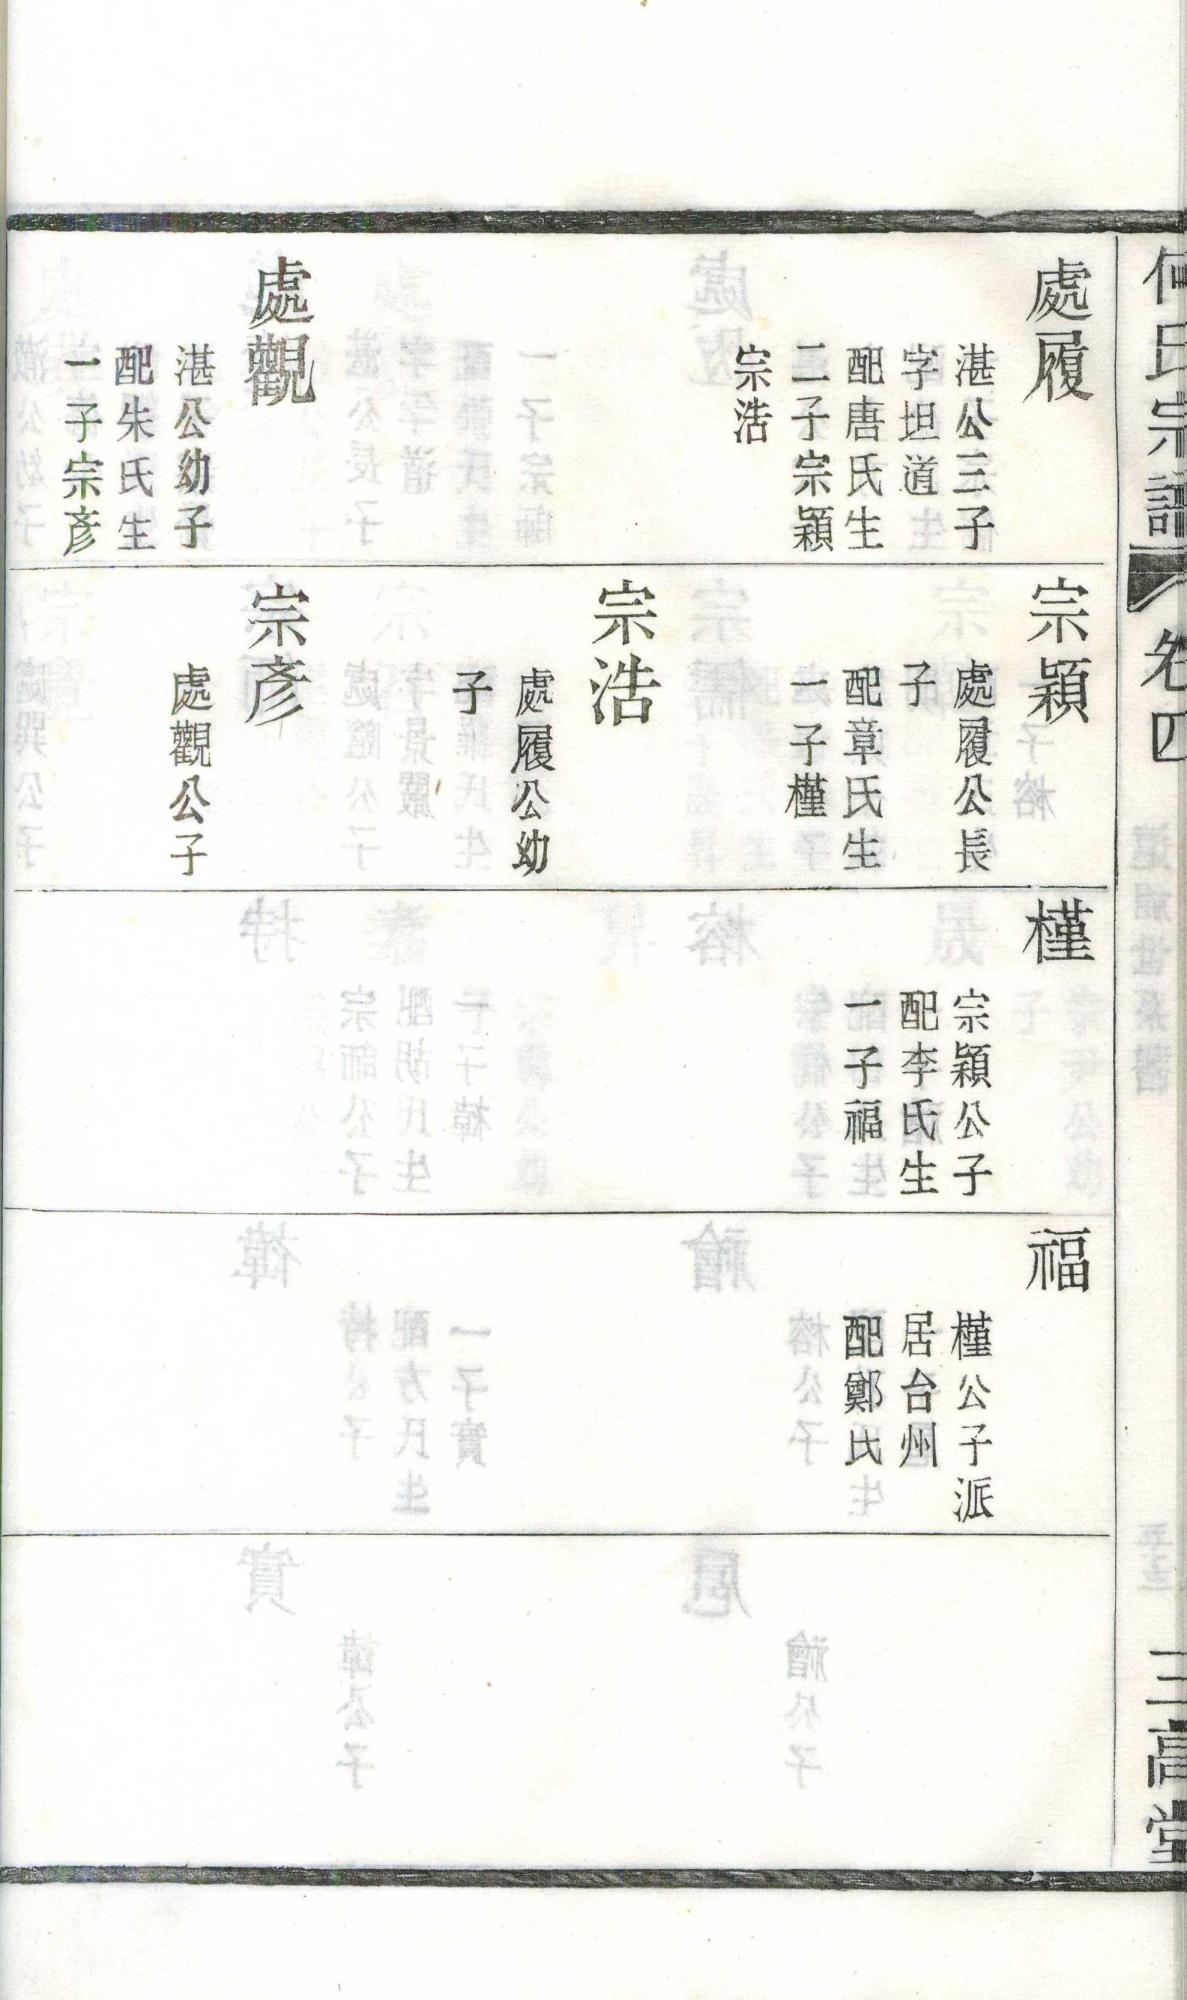 何氏宗譜
卷四
三高堂
處履
湛公三子
字坦道
配唐氏生
二子宗穎
宗浩
處觀
湛公幼子
配朱氏生
一子宗彥
宗穎
處履公長
子
配章氏生
一子槿
宗浩
處履公幼
子
宗彥
處觀公子
槿
宗穎公子
配李氏生
一子福
福
槿公子派
居台州
配鄭氏